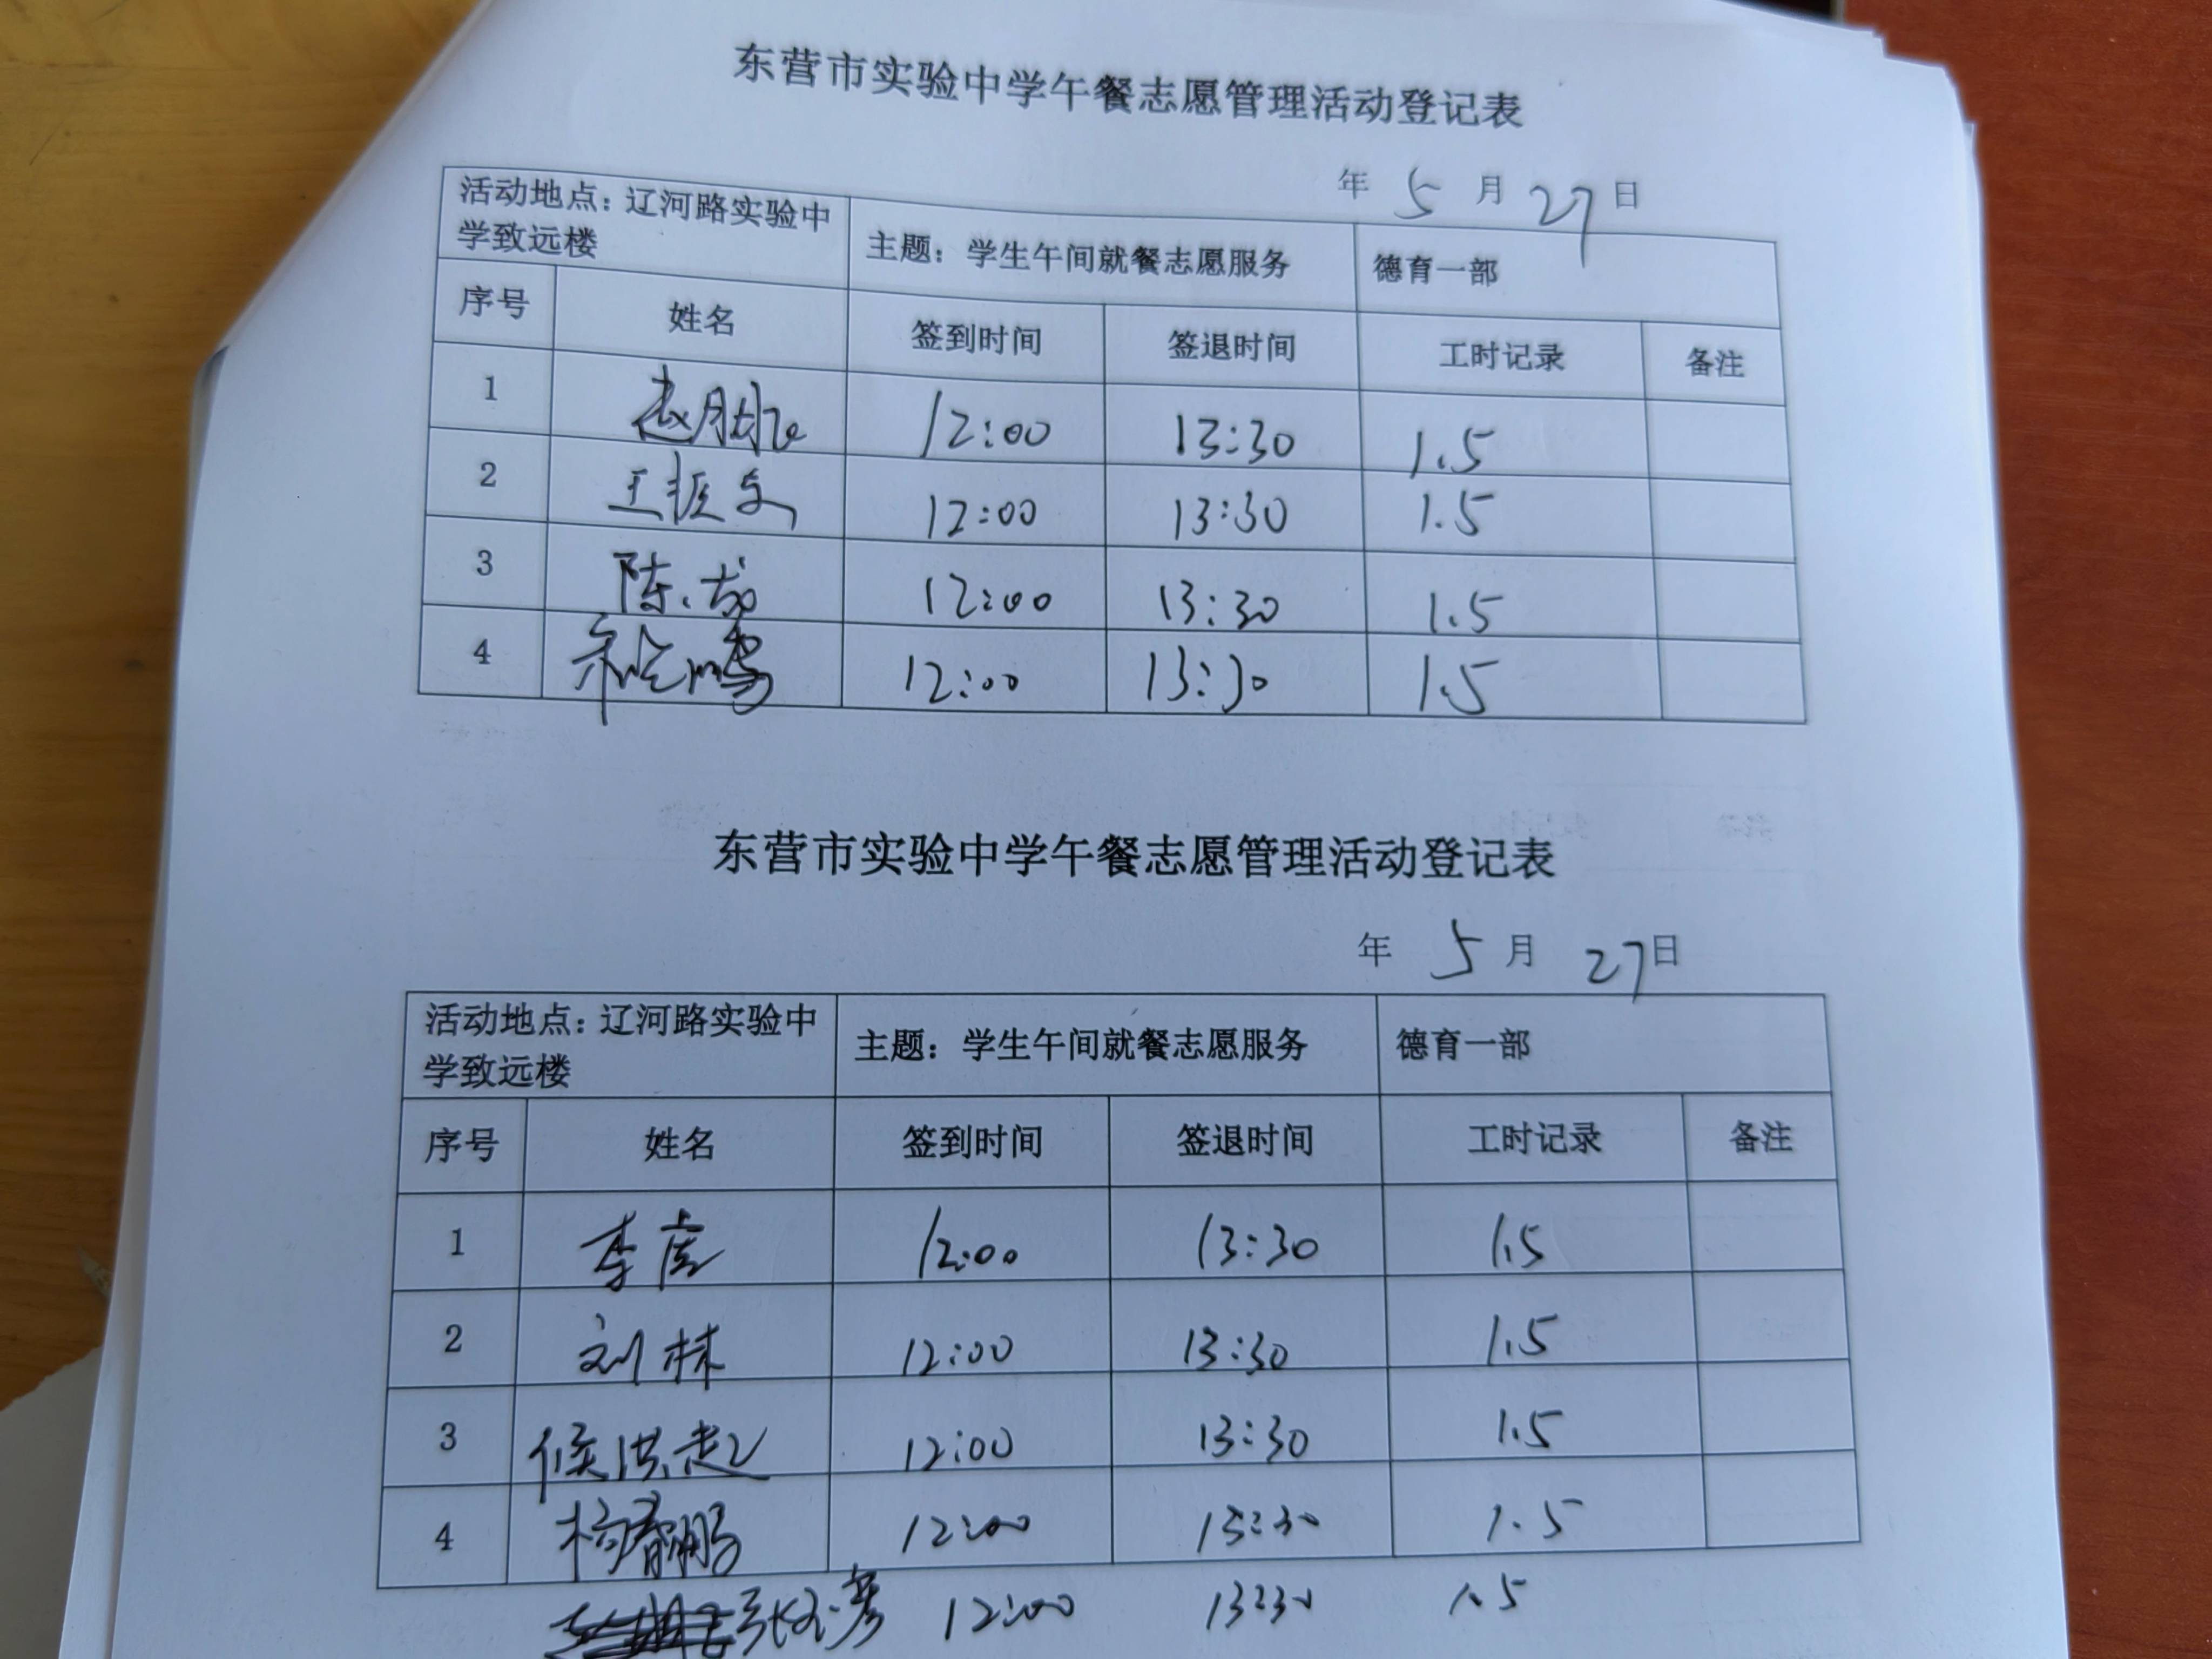 东营市实验中学午餐志愿管理活动登记表
年 5 月 27 日
活动地点：辽河路实验中学致远楼 主题：学生午间就餐志愿服务 德育一部
序号 姓名 签到时间 签退时间 工时记录 备注
1 12:00 13:30 1.5
2 王振文 12:00 13:30 1.5
3 陈龙 12:00 13:30 1.5
4 12:00 13:30 1.5
东营市实验中学午餐志愿管理活动登记表
年 5 月 27 日
活动地点：辽河路实验中学致远楼 主题：学生午间就餐志愿服务 德育一部
序号 姓名 签到时间 签退时间 工时记录 备注
1 李虎 12:00 13:30 1.5
2 刘林 12:00 13:30 1.5
3 侯洪超 12:00 13:30 1.5
4 12:00 13:30 1.5
12:00 13:30 1.5